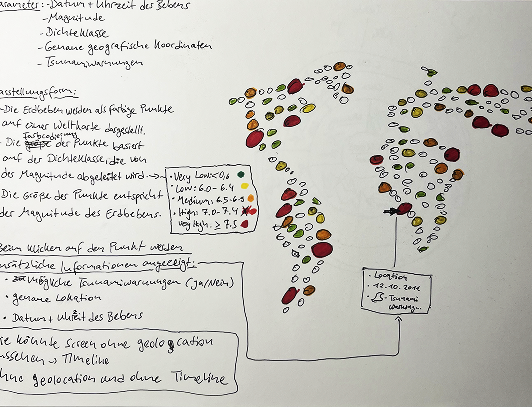 Parameter: - Datum + Uhrzeit des Bebens
- Magnitude
- Dichteklasse
- Genaue geografische Koordinaten
- Tsunamiwarnungen
asstellungsform:
- Die Erdbeben werden als farbige Punkte
auf einer Weltkarte dargestellt.
Farbcodierung
- Die der Punkte basiert
auf der Dichteklasse, die von
der Magnitude abgeleitet wird →
Die Größe der Punkte entspricht
der Magnitude des Erdbebens.
• Very Low: < 0,6
• Low: 6.0 - 6.4
• Medium: 6.5 - 6.9
• High: 7.0 - 7.4
Very High: ≥ 7.5
Beim Klicken auf den Punkt werden
zusätzliche Informationen angezeigt:
• mögliche Tsunamiwarnungen (Ja/Nein)
• genaue Lokation
• Datum + Uhrzeit des Bebens
• Location
• 12.10.2012
Tsunami
Warnung
ie könnte Screen ohne geolocation
ussehen → Timeline
hne geolocation und ohne Timeline